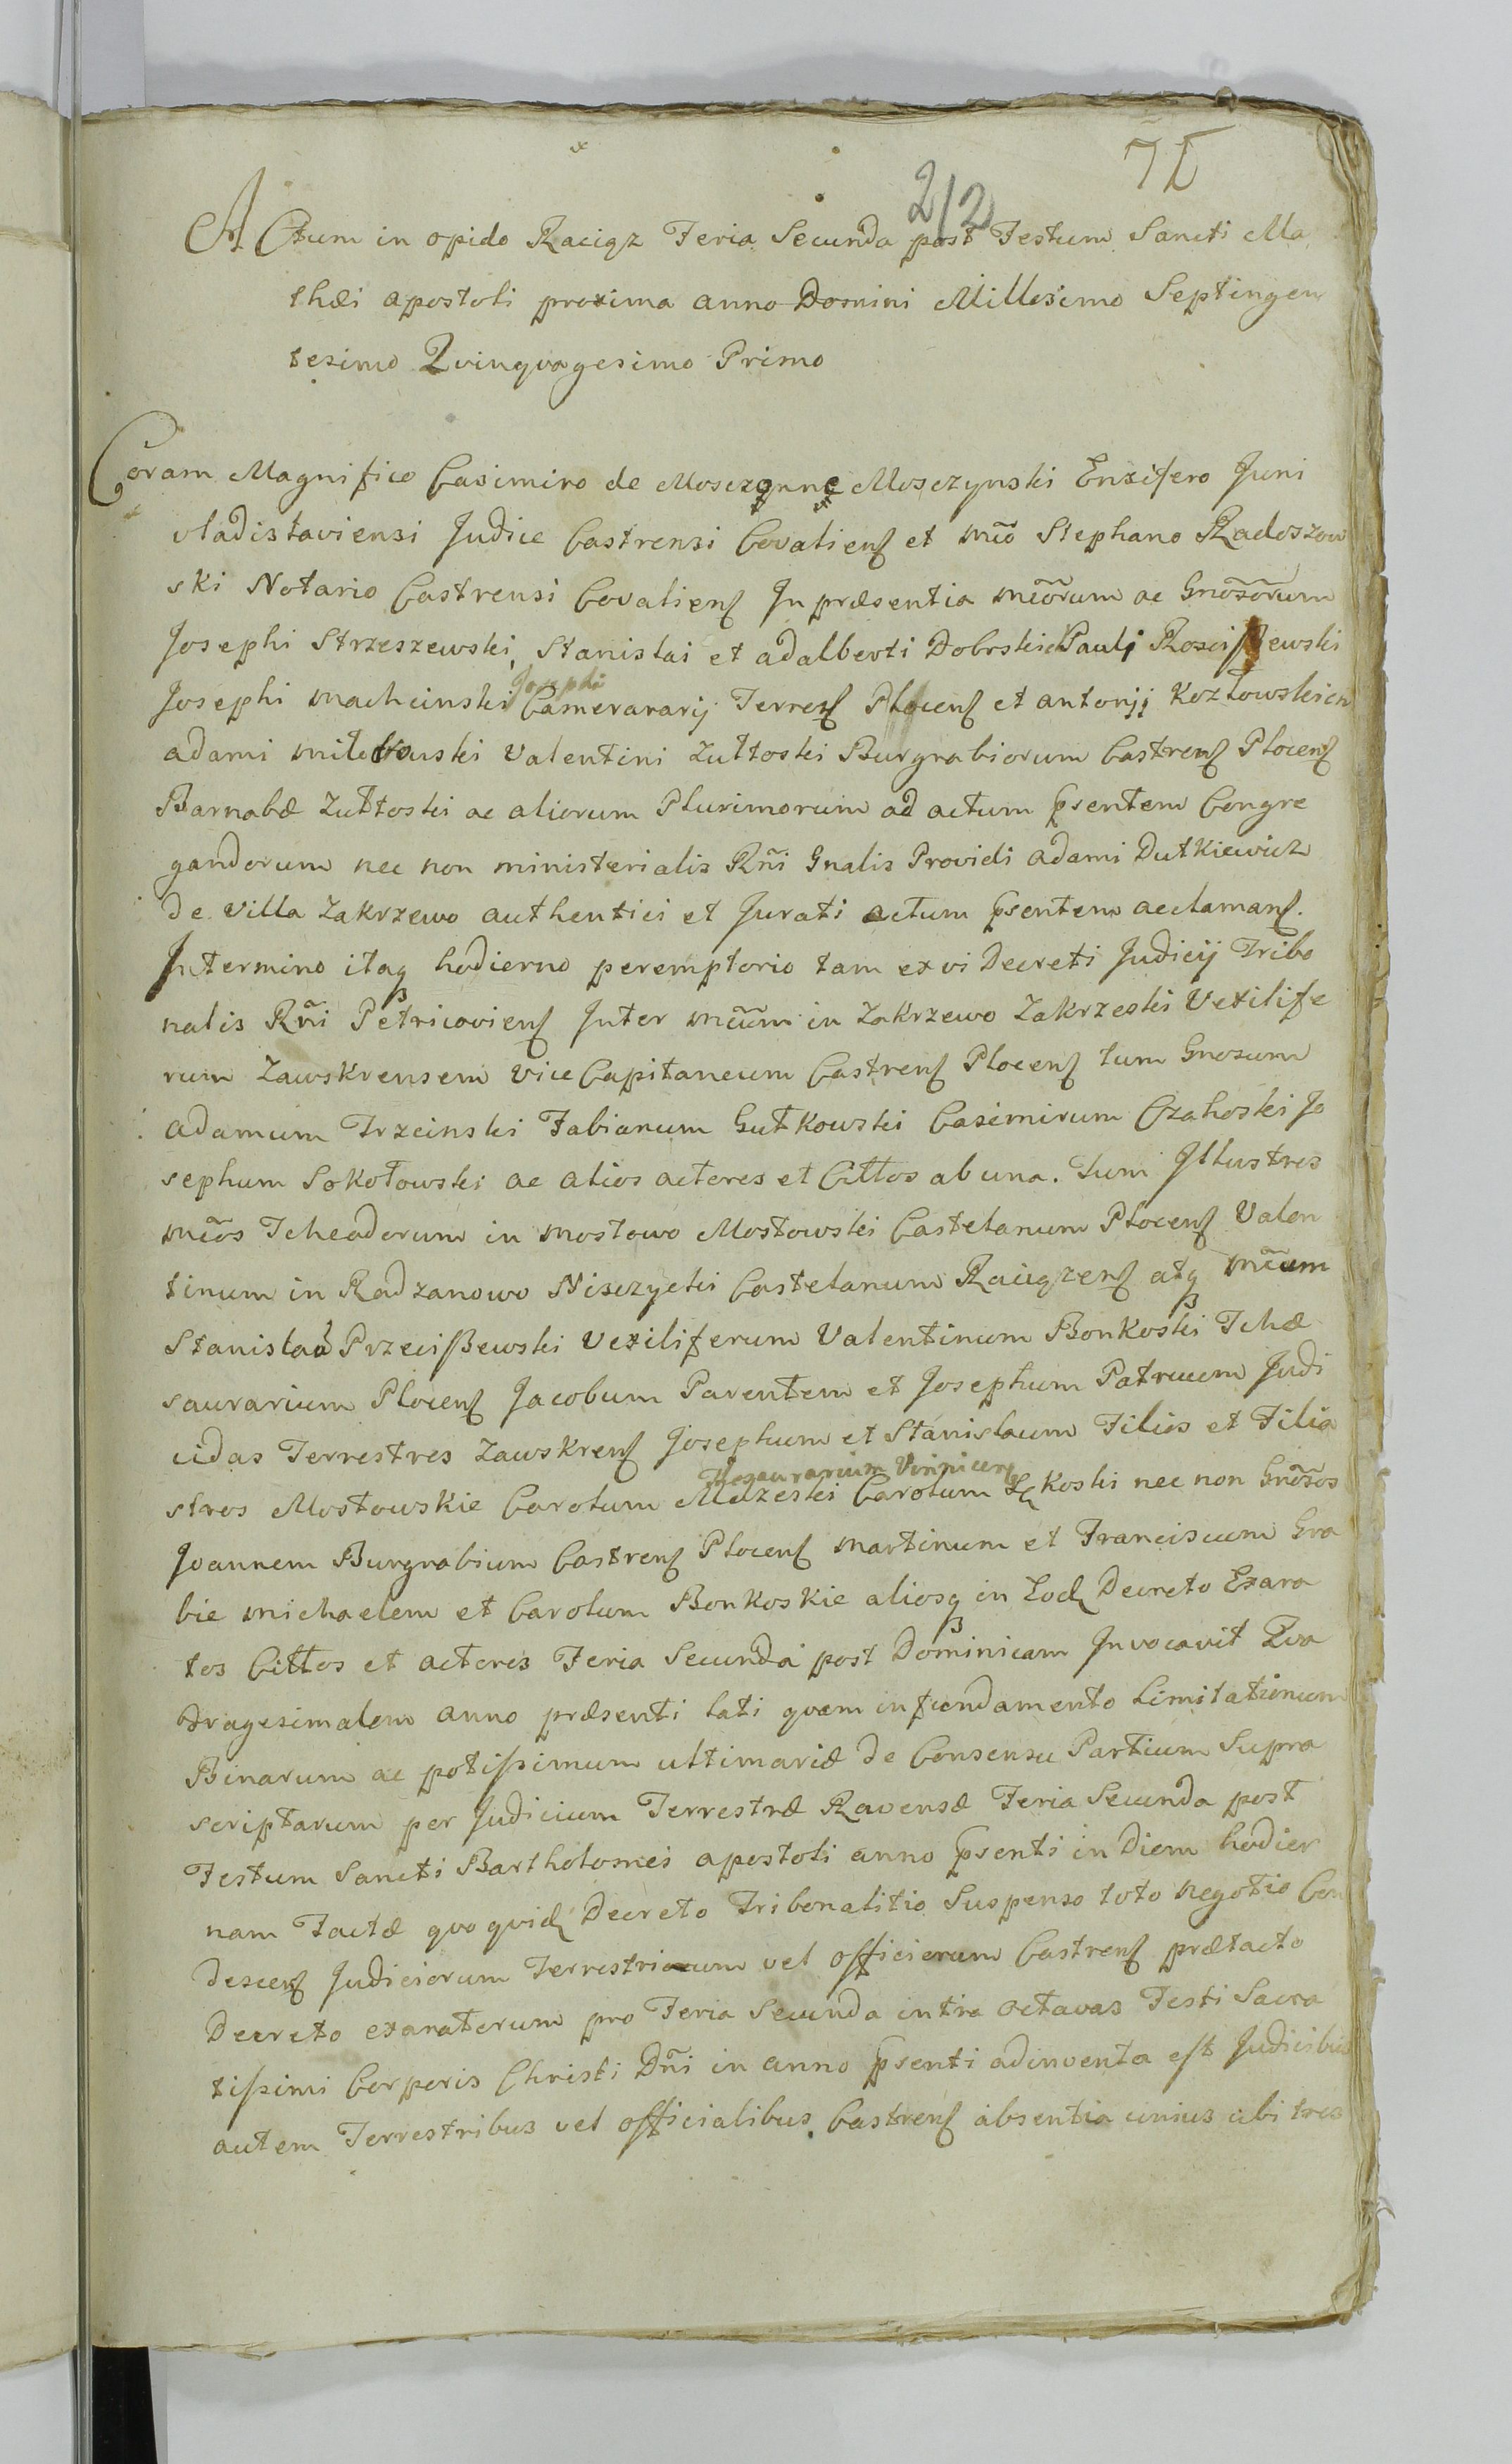 75
212
Actum in opido Raciąz Feria Secunda post Festum Sancti Ma
thæi apostoli proxima anno Domini Millesimo Septingen
tesimo Qvinqvagesimo Primo
Coram Magnifico Casimiro de Mosczonne Mosczynski Ensifero Juni
vladislaviensi Judice Castrensi Covalienſ et Mc̃o Stephano Radoszow
ski Notario Castrensi Covalienſ In præsentia Mc̃orum ac Gnõsorum
Josephi Strzeszewski, Stanislai et adalberti Dobrskich Pauli Rosciszewski
Josephi Machcinski Josephi Camerararij Terresſ Plocenſ et antonij Kozłowskich
adami Milewski Valentini Zułtoski Burgrabiorum Castrenſ Plocenſ
Barnabæ Zułtoski ac aliorum Plurimorum ad actum Psentem Congre
gandorum nec non ministerialis Rñi Gnalis Providi adami Dutkiewicz
de villa Zakrzewo authentici et Jurati actum Psentem acclamanſ.
In termino itaq hodierno peremptorio tam ex vi Decreti Judicij Tribo
nalis Rñi Petricovienſ Inter Mc̃um in Zakrzewo Zakrzeski Vexilife
rum Zawskrensem Vice Capitaneum Castrenſ Plocenſ tum Gnosum
adamum Trzcinski Fabianum Gutkowski Casimirum Czahoski Jo
sephum Sokołowski ac alios actores et Cittos ab una. Tum Illustres
Mc̃os Theodorum in Mostowo Mostowski Castelanum Plocenſ Valen
tinum in Radzanowo Nisczycki Castelanum Raciązenſ atq Mc̃um
Stanislaũ Przeciszewski Vexiliferum Valentinum Bonkoski Thæ
saurarium Plocenſ Jacobum Parentem et Josephum Patruum Judi
cidas Terrestres Zawskrenſ Josephum et Stanislaum Filios et Filia
Thesaurarium Vinnicenſ
stros Mostowskie Carolum Mdzeski Carolum koski nec non Gnõsos
Joannem Burgrabium Castrenſ Plocenſ Martinum et Franciscum Gra
bie Michaelem et Carolum Bonkoskie aliosq in Eod Decreto Exara
tos Cittos et actores Feria Secunda post Dominicam Invocavit Qva
dragesimalem anno præsenti lati qvam in fundamento Limitationum
Binarum ac potissimum ultimariæ de Consensu Partium Supra
scriptarum per Judicium Terrestræ Ravensæ Feria Secunda post
Festum Sancti Bartholomei apostoli anno Psenti in Diem hodier
nam Factæ qvo qvid Decreto Tribonalitio Suspenso toto negotio Con
descenſ Judiciorum Terrestriorum vel officiorum Castrenſ prætacto
Decreto exaratorum pro Feria Secunda intra octavas Festi Sacra
tissimi Corporis Christi Dñi in anno Psenti adinventa est Judicibus
autem Terrestribus vel officialibus Castrenſ absentia unius ubi tres